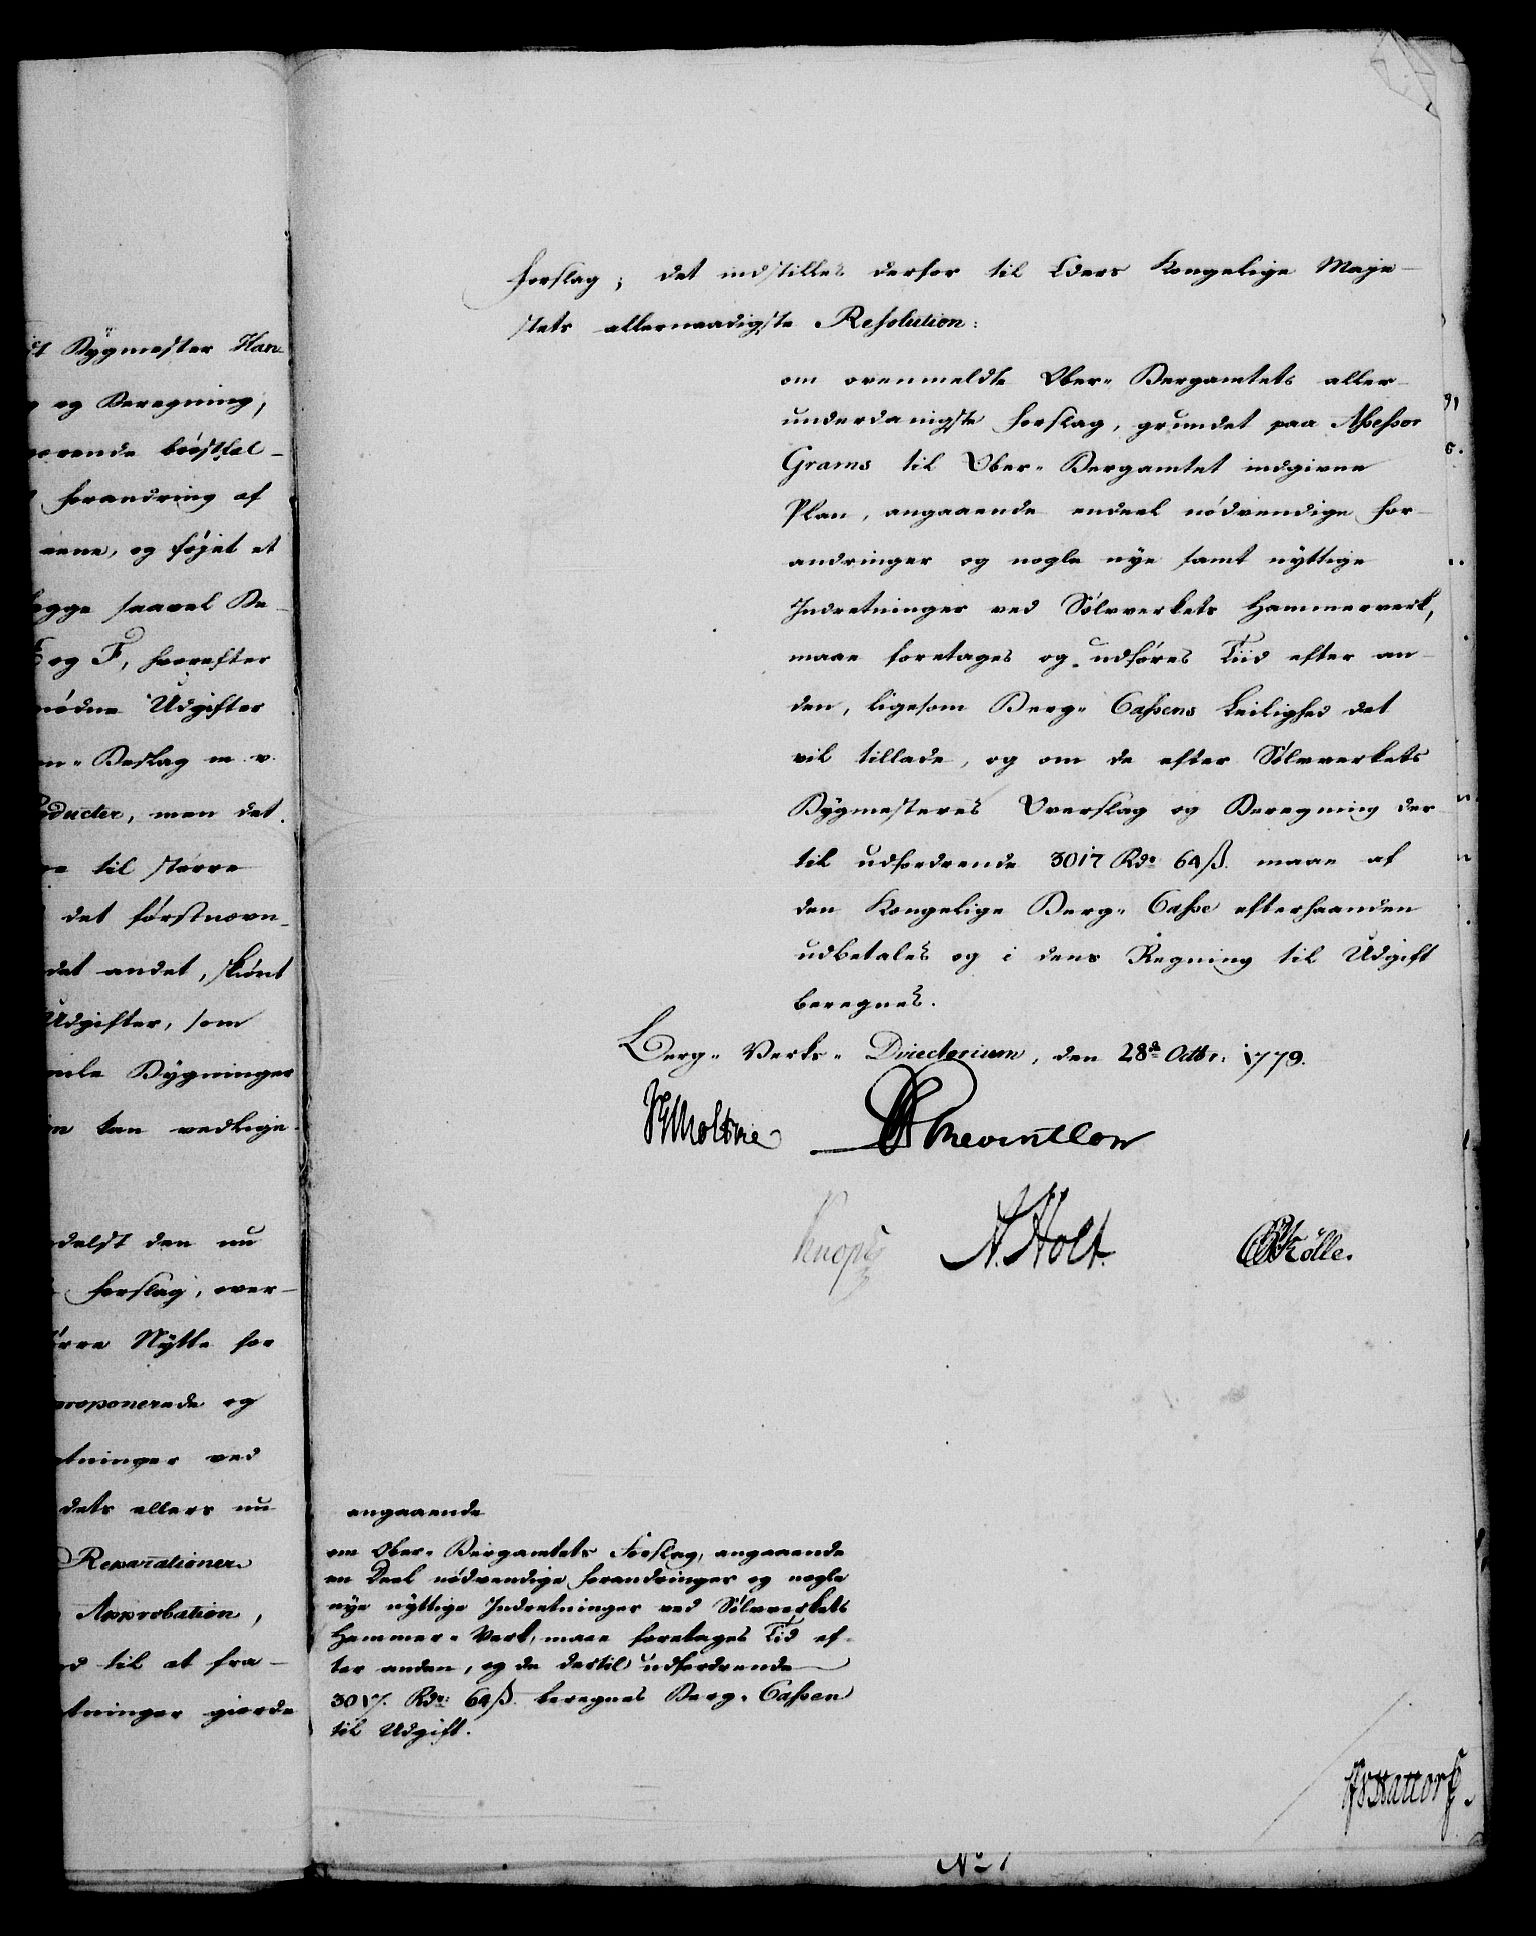 Bygmester Han
og Beregning,
rende brøstfel-
forandring af
nene, og føjet et
egge saavel Be-
og F, hvorefter
nødne Udgifter
n- Beslag m. v.
ducter, men det
til større
det førstnævn-
det andet, skiønt
Udgifter, som
Bygninger
kan vedlige-
delst den nu
Forslag, over-
rre Nytte for
proponerede og
tninger ved
dets ellers nu
Reparationer
Approbation,
til at fra-
tninger giorde
Forslag; det indstilles derfor til Eders Kongelige Maje-
stets allernaadigste Resolution:
om ovenmeldte Ober- Bergamtets aller-
underdanigste Forslag, grundet paa Assessor
Grams til Ober- Bergamtet indgivne
Plan, angaaende endeel nødvendige For-
andringer og nogle nye samt nyttige
Indretninger ved Sølvverkets Hammerverk,
maae foretages og udføres Tiid efter an-
den, ligesom Berg- Cassens Leilighed det
vil tillade, og om de efter Sølvverkets
Bygmesteres Overslag og Beregning der-
til udfordrende 3017 Rdr 64 ß. maae af
den Kongelige Berg- Casse efterhaanden
udbetales og i dens Regning til Udgift
beregnes.
Berg- Verks- Directorium, den 28de Octbr: 1779.
Moltke Reventlow
Knoph A. Holt. Kölle.
angaaende
om Ober- Bergamtets Forslag, angaaende
en Deel nødvendige forandringer og nogle
nye nyttige Indretninger ved Sølvverkets
Hammer- Verk, maae foretages Tid ef-
ter anden, og de dertil udfordrende
3017. Rdr: 64 ß. beregnes Berg- Cassen
til Udgift.
Hattorf.
No 1